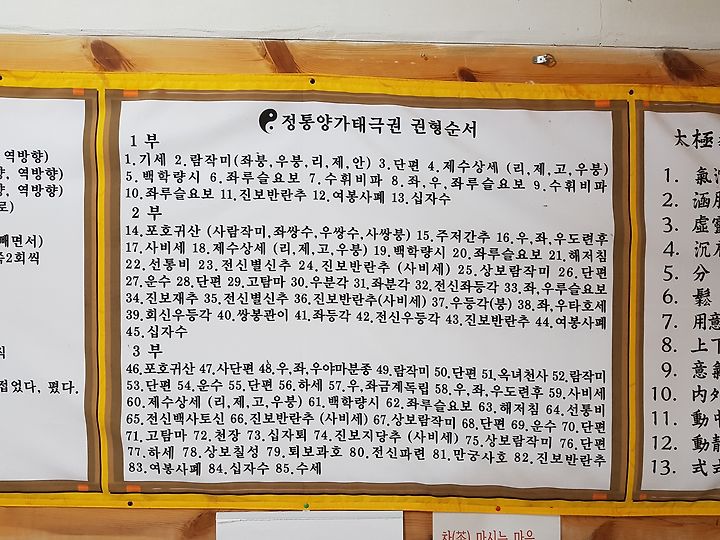 역방향)
역방향)
역방향)
빼면서)
2회씩
접었다, 폈다.
정통양가태극권 권형순서
1 부
1.기세 2.람작미(좌붕,우붕,리,제,안) 3.단편 4.제수상세 (리,제,고,우붕)
5.백학량시 6.좌루슬요보 7.수휘비파 8.좌,우,좌루슬요보 9.수휘비파
10.좌루슬요보 11.진보반란추 12.여봉사폐 13.십자수
2 부
14.포호귀산 (사람작미,좌쌍수,우쌍수,사쌍붕) 15.주저간추 16.우,좌,우도련후
17.사비세 18.제수상세 (리,제,고,우붕) 19.백학량시 20.좌루슬요보 21.해저침
22.선통비 23.전신별신추 24.진보반란추 (사비세) 25.상보람작미 26.단편
27.운수 28.단편 29.고탐마 30.우분각 31.좌분각 32.전신좌등각 33.좌,우루슬요보
34.진보재추 35.전신별신추 36.진보반란추(사비세) 37.우등각(붕) 38.좌,우타호세
39.회신우등각 40.쌍봉관이 41.좌등각 42.전신우등각 43.진보반란추 44.여봉사폐
45.십자수
3 부
46.포호귀산 47.사단편 48.우,좌,우야마분종 49.람작미 50.단편 51.옥녀천사 52.람작미
53.단편 54.운수 55.단편 56.하세 57.우,좌금계독립 58.우,좌,우도련후 59.사비세
60.제수상세 (리,제,고,우붕) 61.백학량시 62.좌루슬요보 63.해저침 64.선통비
65.전신백사토신 66.진보반란추 (사비세) 67.상보람작미 68.단편 69.운수 70.단편
71.고탐마 72.천장 73.십자퇴 74.진보지당추 (사비세) 75.상보람작미 76.단편
77.하세 78.상보칠성 79.퇴보과호 80.전신파련 81.만궁사호 82.진보반란추
83.여봉사폐 84.십자수 85.수세
太極
1. 氣
2. 涵
3. 虛
4. 沉
5. 分
6. 鬆
7. 用意
8. 上下
9. 意氣
10. 内外
11. 動中
12. 動靜
13. 式式
차(茶) 마시는 마음